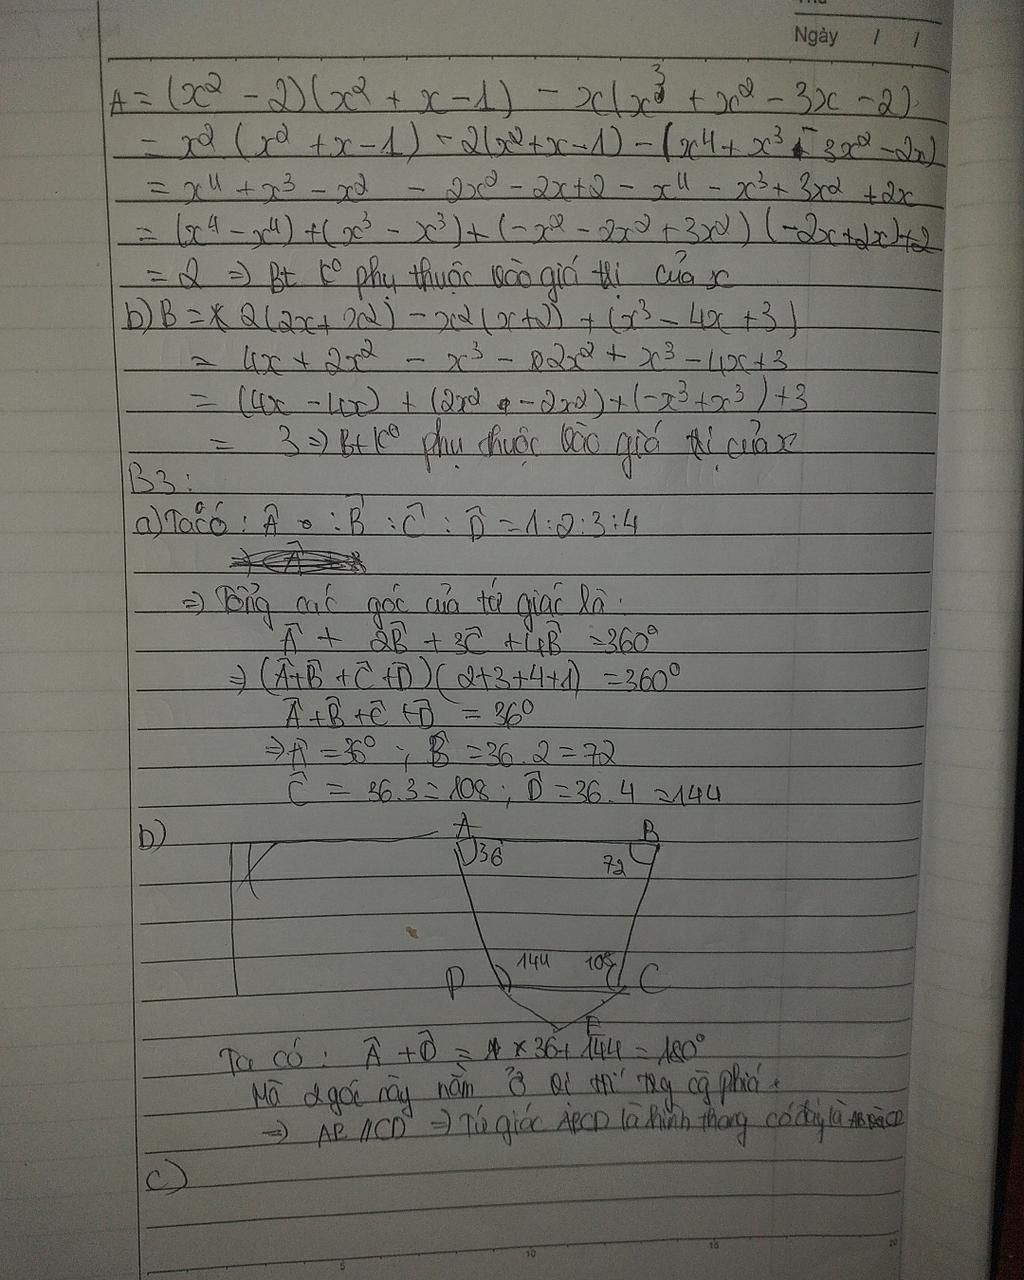 Thứ
Ngày / /
A = (x² - 2)(x² + x - 1) - x(x³ + x² - 3x - 2)
= x² (x² + x - 1) - 2(x² + x - 1) - (x⁴ + x³ - 3x² - 2x)
= x⁴ + x³ - x² - 2x² - 2x + 2 - x⁴ - x³ + 3x² + 2x
= (x⁴ - x⁴) + (x³ - x³) + (-x² - 2x² + 3x²) (-2x + 2x) + 2
= 2 => Bt k° phụ thuộc vào giá trị của x
b) B = 2(2x + x²) - x²(x + 2) + (x³ - 4x + 3)
= 4x + 2x² - x³ - 2x² + x³ - 4x + 3
= (4x - 4x) + (2x² - 2x²) + (-x³ + x³) + 3
= 3 => Bt k° phụ thuộc vào giá trị của x
B3:
a) Ta có : Â : B̂ : Ĉ : D̂ = 1 : 2 : 3 : 4
=> Tổng các góc của tứ giác là
Â + 2B̂ + 3Ĉ + 4B̂ = 360°
=> (Â + B̂ + Ĉ + D̂)(2+3+4+1) = 360°
Â + B̂ + Ĉ + D̂ = 36°
=> Â = 36° ; B̂ = 36 . 2 = 72
Ĉ = 36.3 = 108 ; D̂ = 36 . 4 = 144
b)
A B
36 72
144 108
D C
E
Ta có : Â + D̂ = 36 + 144 = 180°
Mà 2 góc này nằm ở vị trí trg cg phía
=> AB // CD => Tứ giác ABCD là hình thang có đáy là AB và CD
c)
5 10 15 20